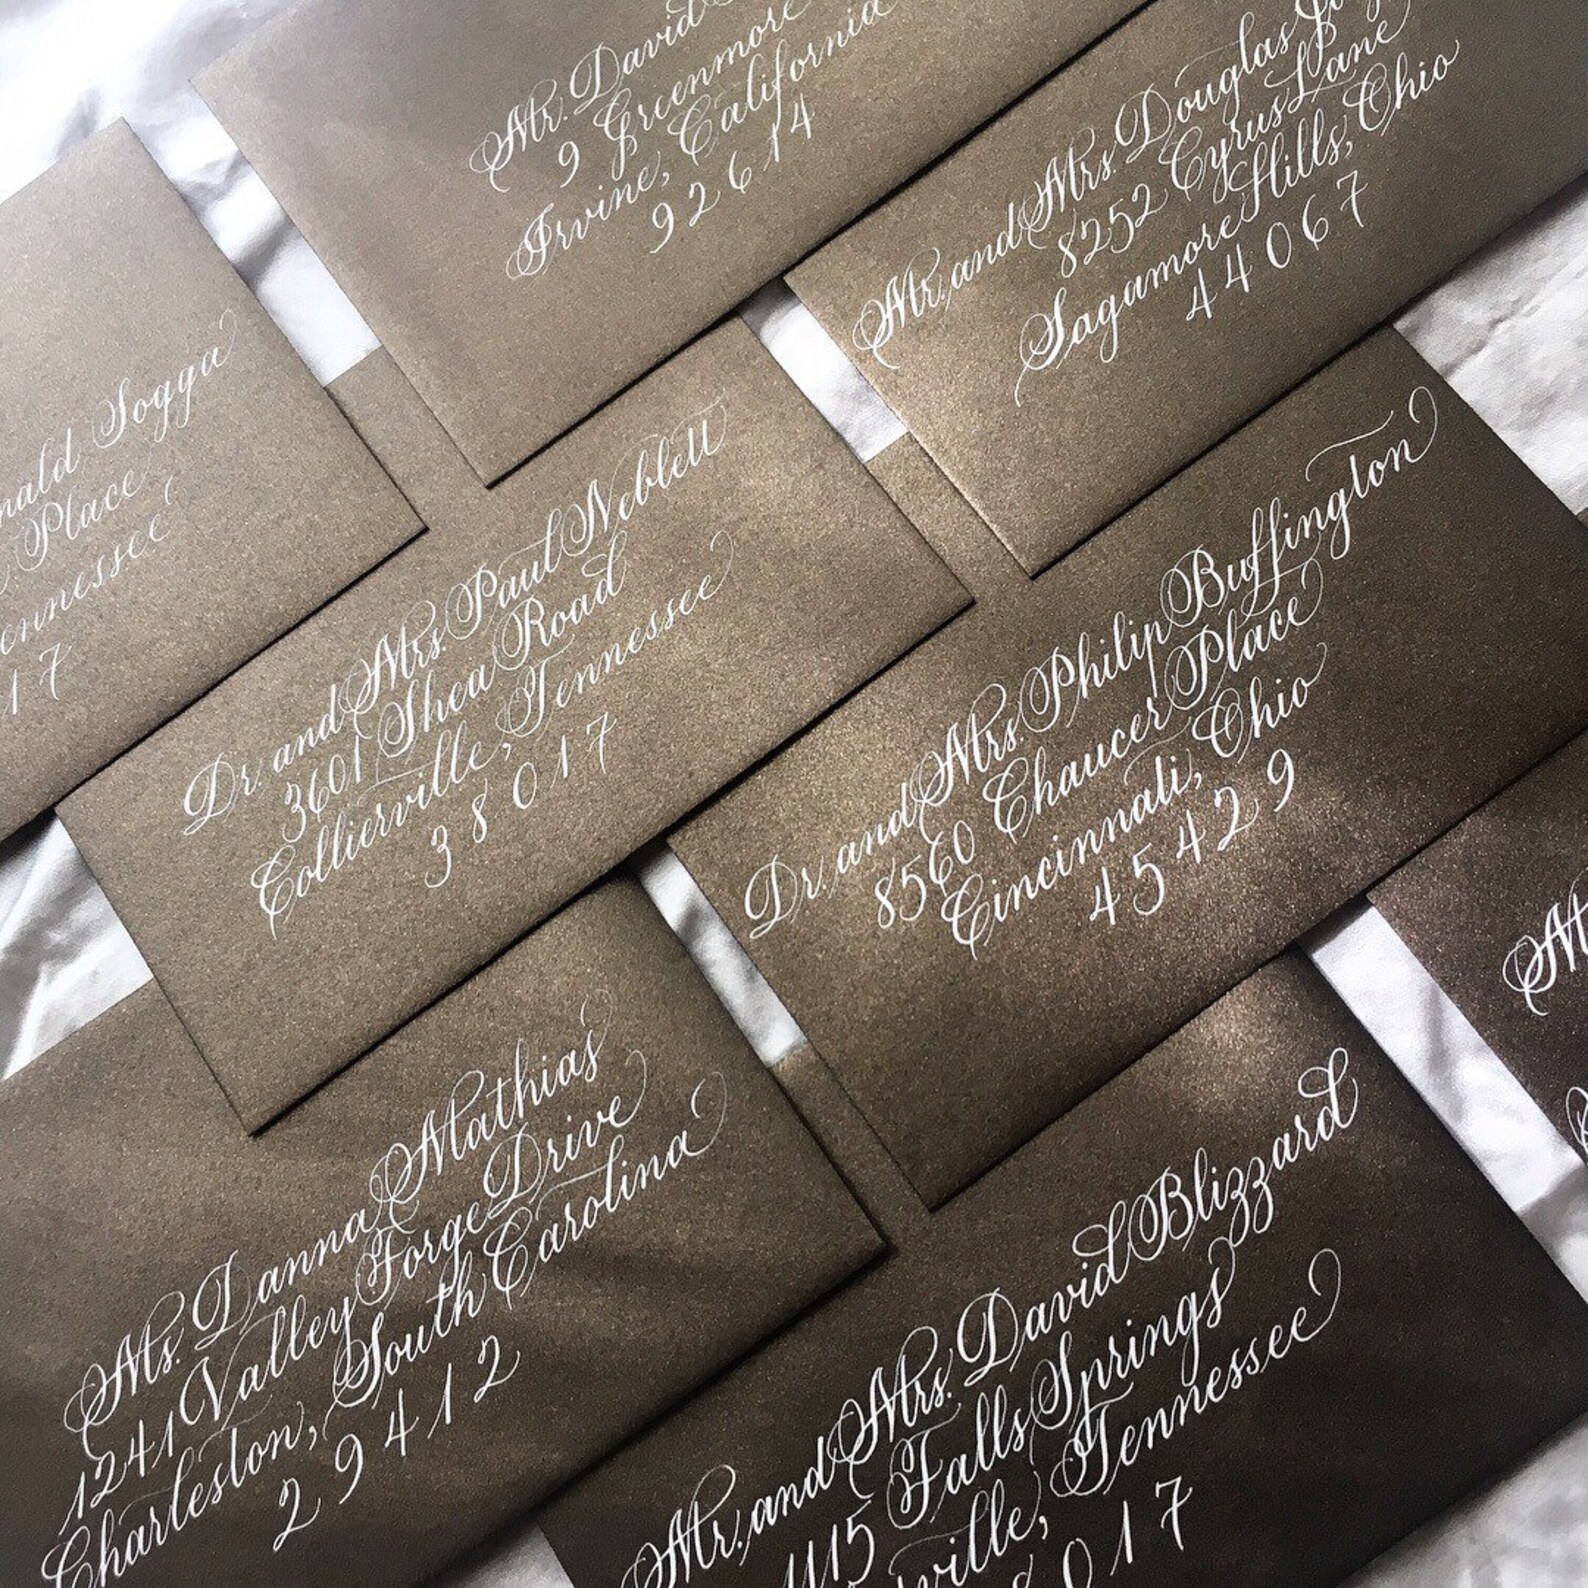 Mr. David
9 Greenmore
Irvine, California
92614
Mr. and Mrs. Douglas
8252 Cyrus Lane
Sagamore Hills, Ohio
44067
Sogga
Place
17
Dr. and Mrs. Paul Neblett
3601 Shea Road
Collierville, Tennessee
38017
Dr. and Mrs. Philip Buffington
8560 Chaucer Place
Cincinnati, Ohio
45429
Ms. Danna Mathias
1241 Valley Forge Drive
Charleston, South Carolina
29412
Mr. and Mrs. David Blizzard
1115 Falls Springs
Tennessee
017